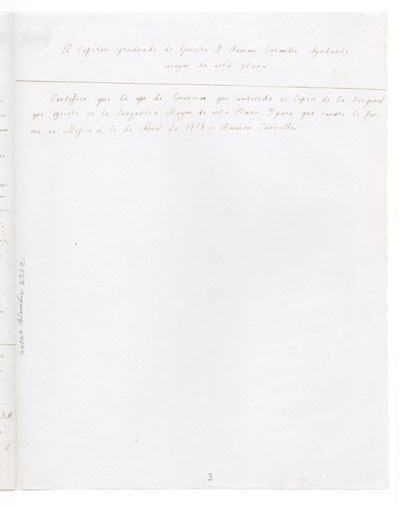 El Capitan graduado de Ejercito D. Ramon Carrillo Ayudante
mayor de esta plaza.
Certifico que la oja de servicios que antecede es copia de la Original
que existe en la Sargentia Mayor de esta Plaza. Y para que conste la fir-
mo en Mejico á 1o de Abril de 1818 = Ramon Carrillo
Lucas Alamán 232c
3